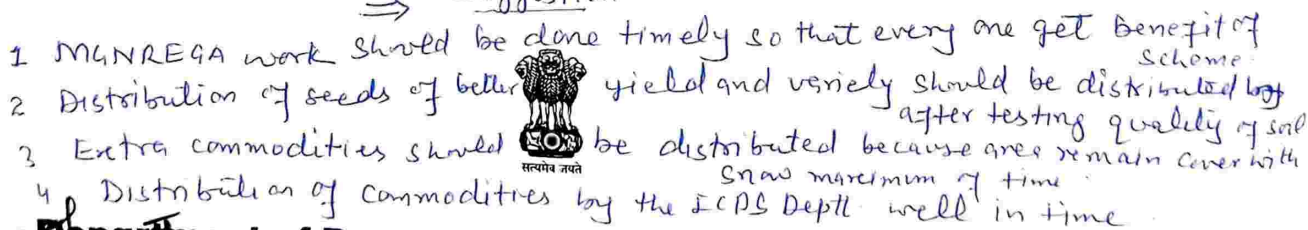 1 MGNREGA work should be done timely so that every one get benefit of
scheme.
2 Distribution of seeds of better yield and veriely should be distributed
after testing quality of soil
3 Extra commodities should be distributed because area remain cover with
snow maximum of time.
4 Distribution of commodities by the ICDS Deptt well in time
सत्यमेव जयते